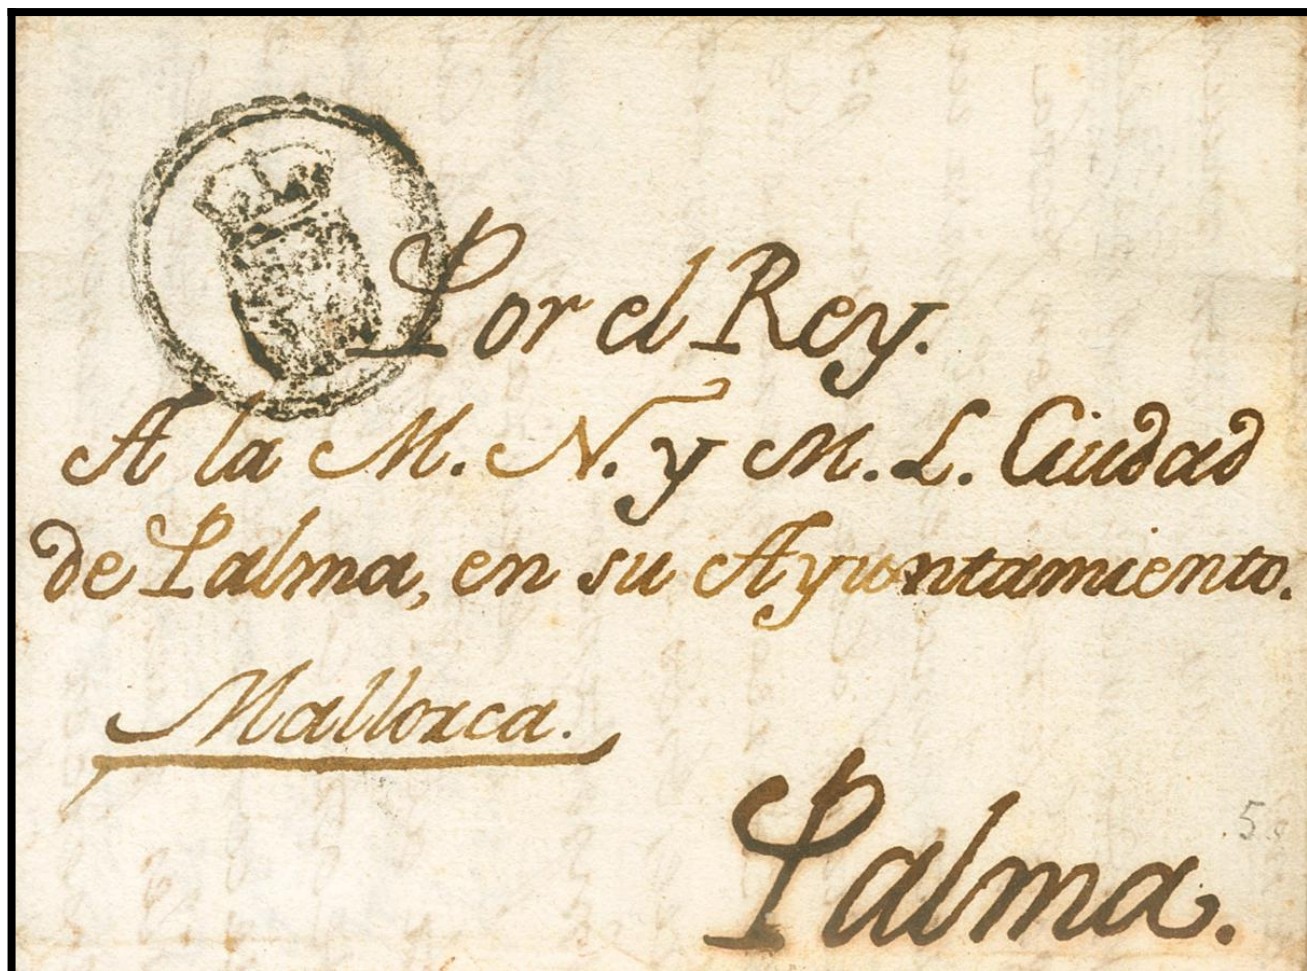 Por el Rey.
A la M. N. y M. L. Ciudad
de Palma, en su Ayuntamiento.
Mallorca.
Palma.
.5.